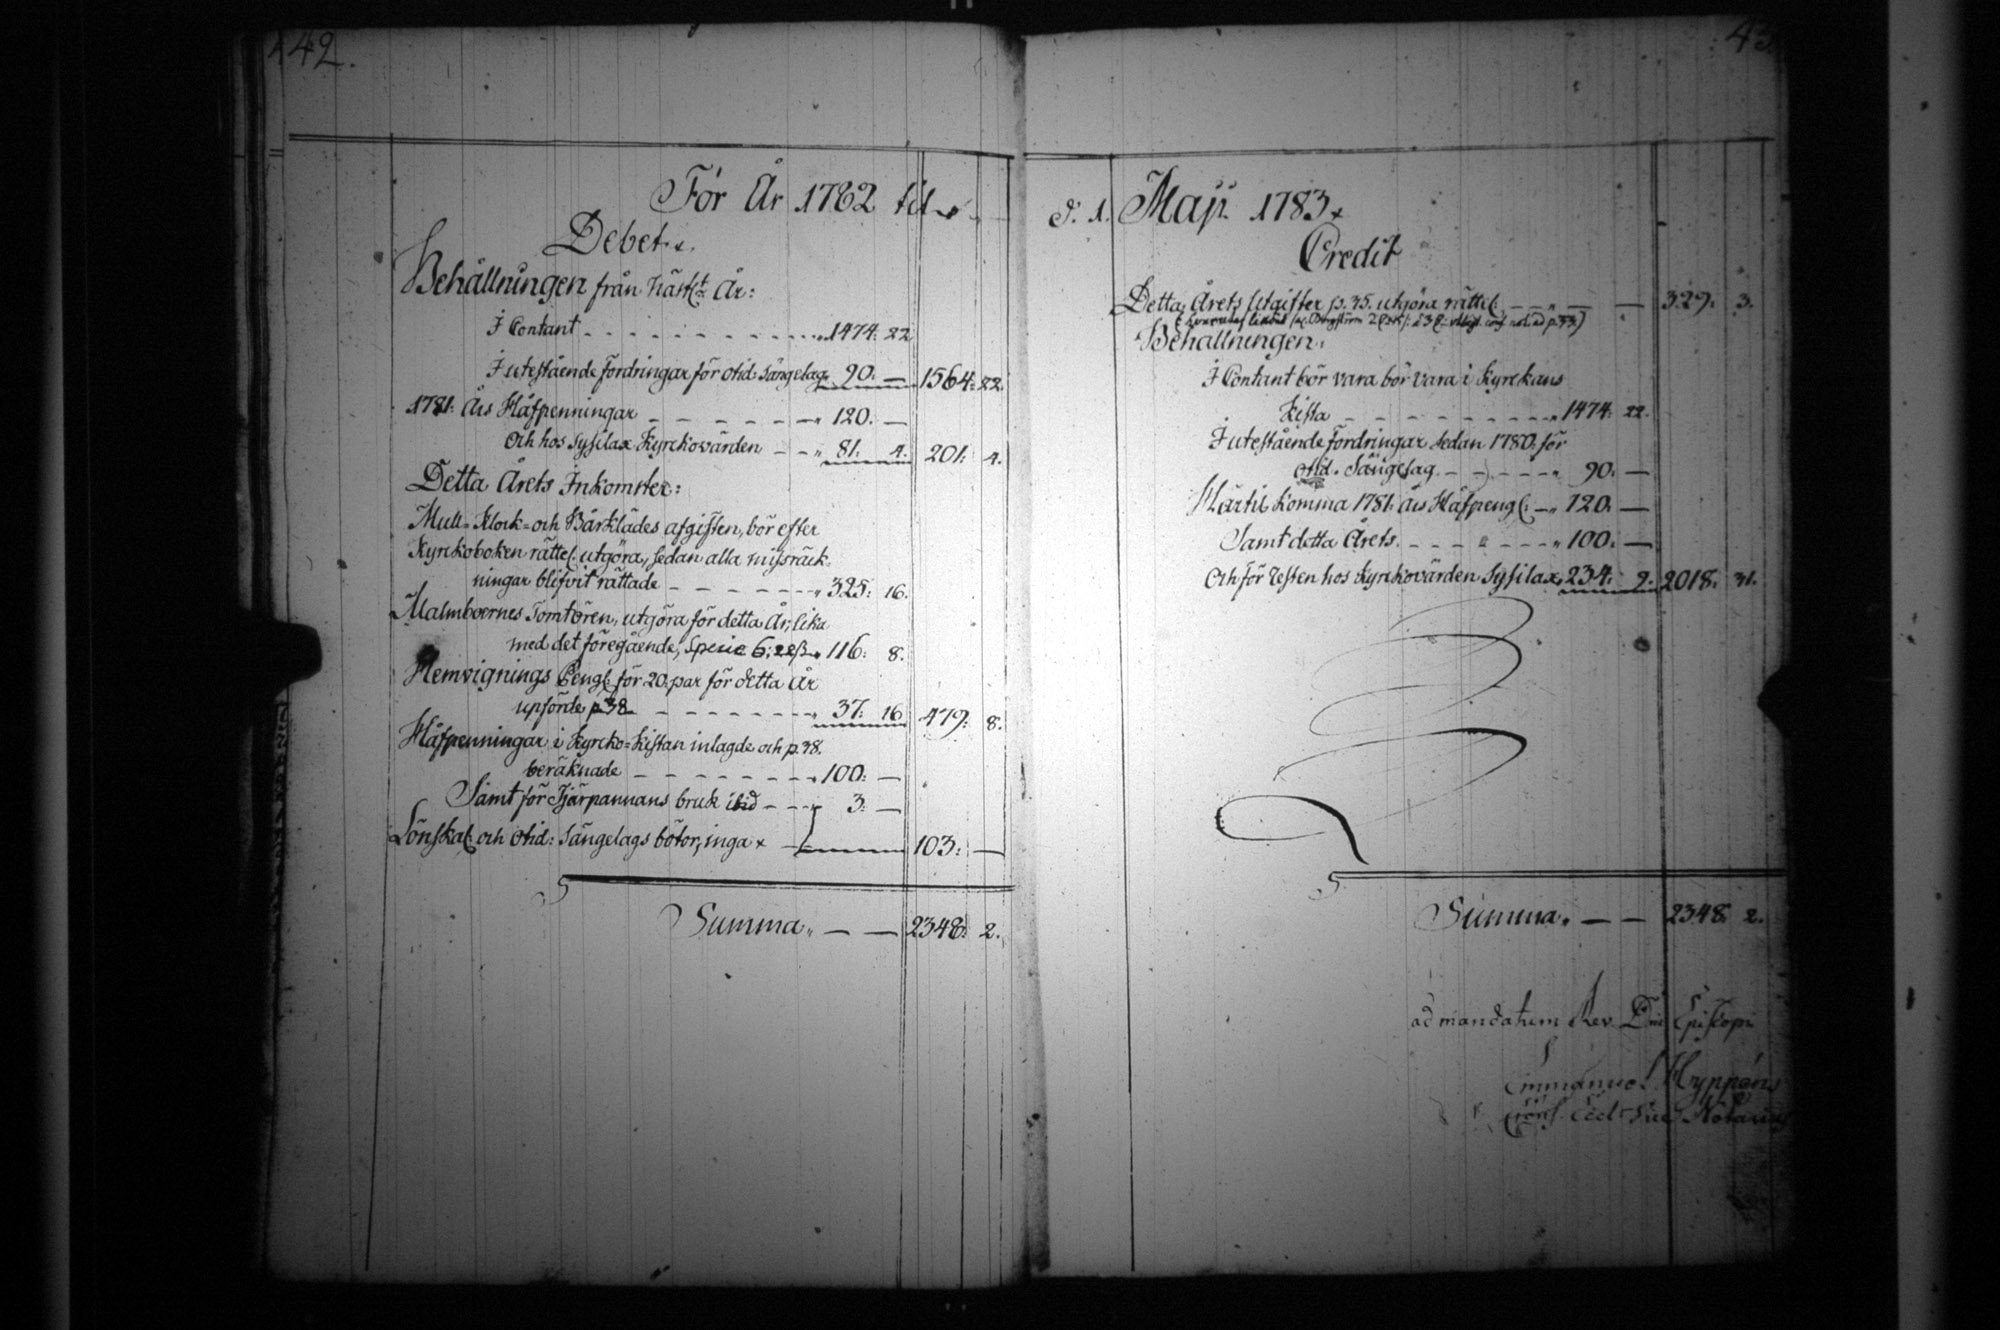 42.
För År 1782 til
Debet.
Behållningen från näst År:
I Contant 1474: 22
I utestående fordringar för otid. Sängelag 90: — 1564: 22.
1781. års Håfpenningar 120. —
Och hos Sysilax Kyrckovärden 81. 4. 201: 4.
Detta Årets Inkomster:
Mull= Klock= och Bårklädes afgiften, bör efter
Kyrckoboken rättel. utgöra, sedan alla missräck
ningar blifvit rättade 325: 16.
Malmboernes Tomtören, utgöra för detta År, lika
med det föregående, Specie 6: 22ß 116: 8.
Hemvignings Peng: för 20. par för detta År
upförde p 38 37: 16 479: 8.
Håfpenningar i Kyrcko=Kistan inlagde och p. 38.
beräknade 100: —
Samt för Tjärpannans bruk ibid 3: —
Lönskal: och Otid: Sängelags böter, inga 103: —
Summa 2348: 2.
43
d. 1. Maji. 1783.
Credit
Detta Årets Utgifter p. 35. utgöra rättel: 329: 3.
Behållningen:
I Contant bör vara bör vara i Kyrckans
Kista 1474: 22.
I utestående fordringar sedan 1780. för
otid. Sängelag 90: —
Härtil komma 1781. års Håfpeng: 120: —
Samt detta Årets 100: —
Och för resten hos Kyrckovärden Sysilax 234: 9. 2018: 31.
Summa 2348: 2.
ad mandatum Rev. Dni Episcopi
Emmanuel Hyppéns
Notarius